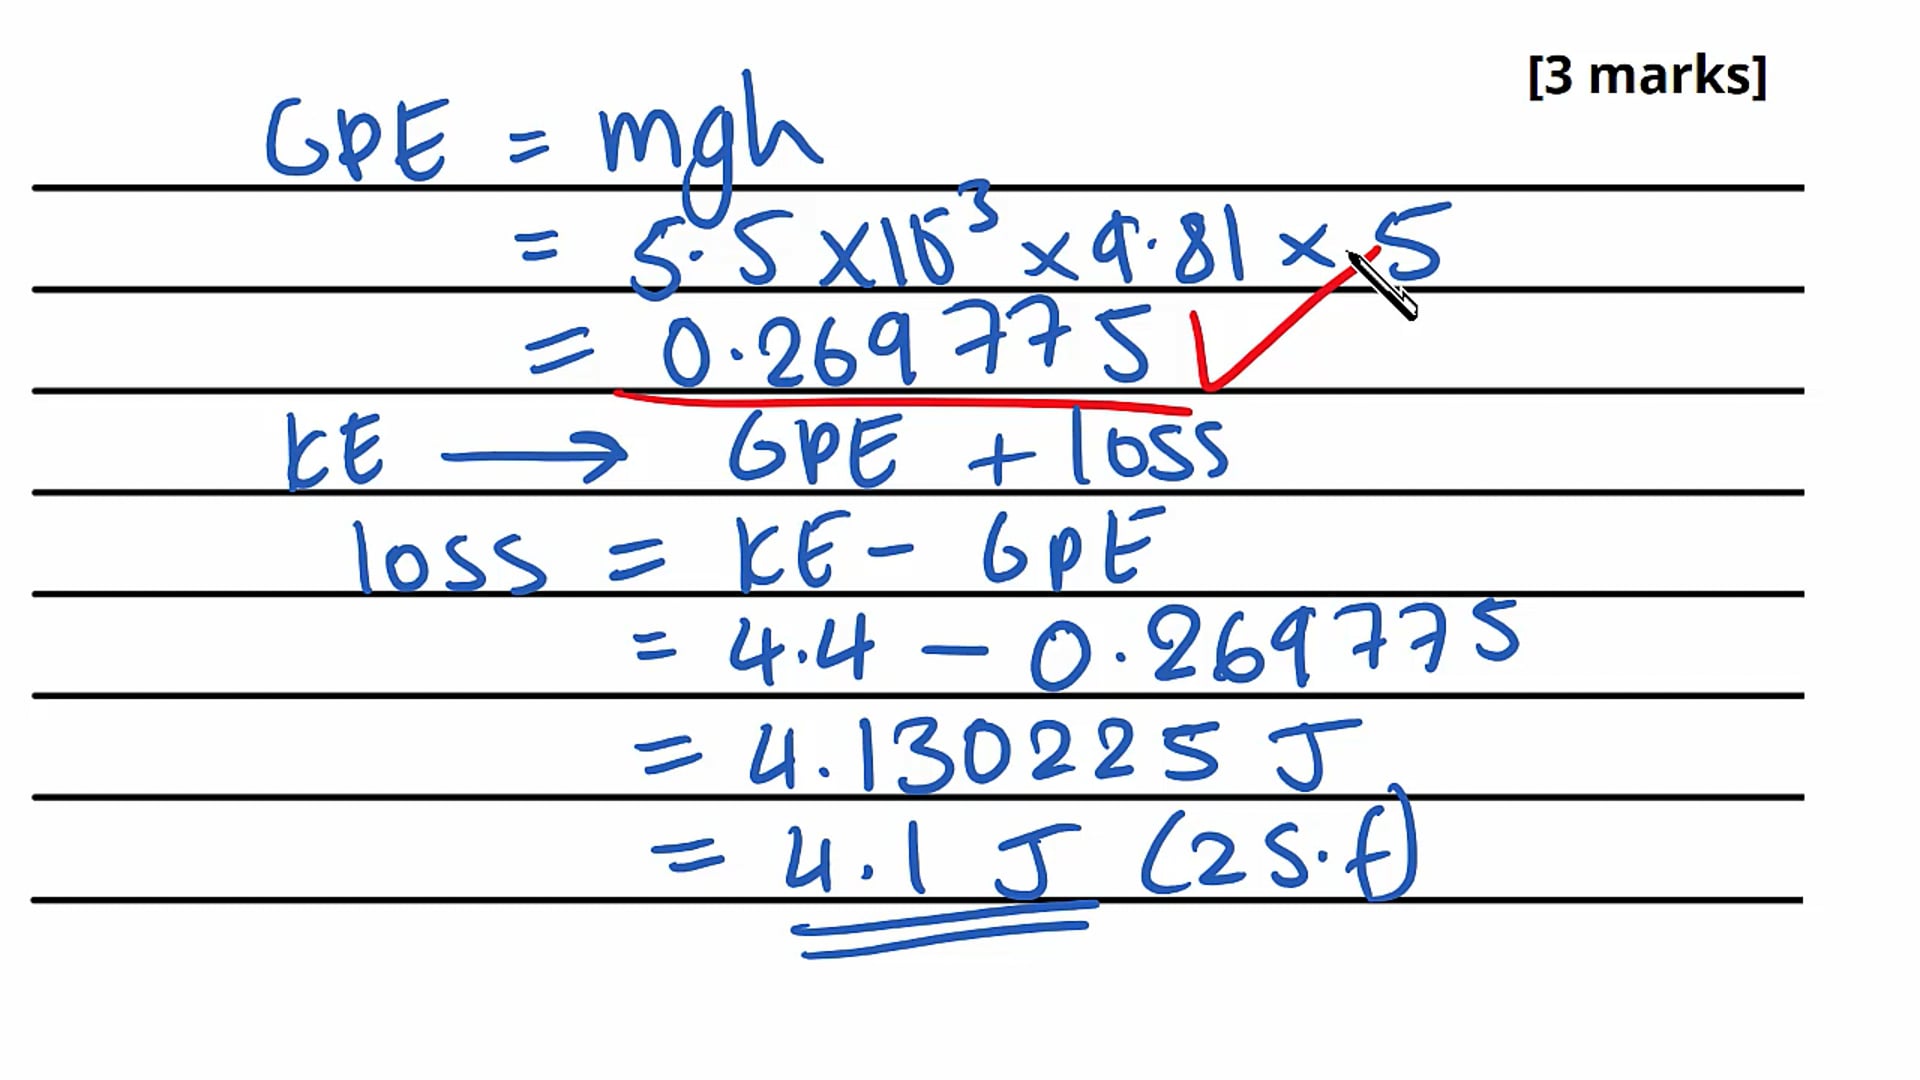 [3 marks]
GPE = mgh
= 5.5 × 10⁻³ × 9.81 × 5
= 0.269775
KE → GPE + loss
loss = KE - GPE
= 4.4 - 0.269775
= 4.130225 J
= 4.1 J (2 s.f)